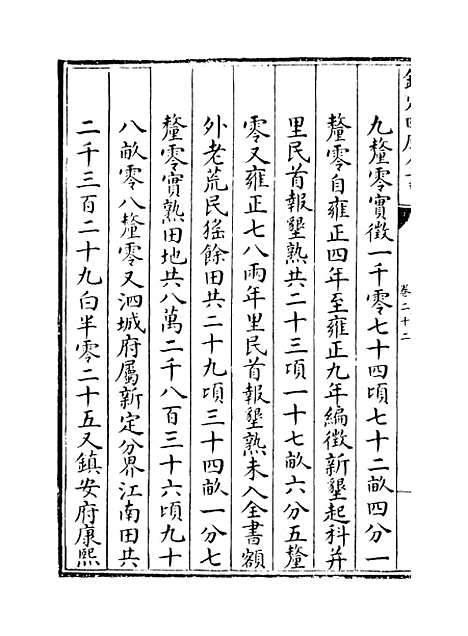 卷二十二
九釐零實徵一千零七十四頃七十二畝四分一
釐零自雍正四年至雍正九年編徵新墾起科并
里民首報墾熟共二十三項一十七畝六分五釐
零又雍正七八兩年里民首報墾熟未入全書額
外老荒民猺餘田共二十九頃三十四畝一分七
釐零實熟田地共八萬二千八百三十六頃九十
八畝零八釐零又泗城府屬新定分界江南田共
二千三百二十九白半零二十五又鎮安府康熙